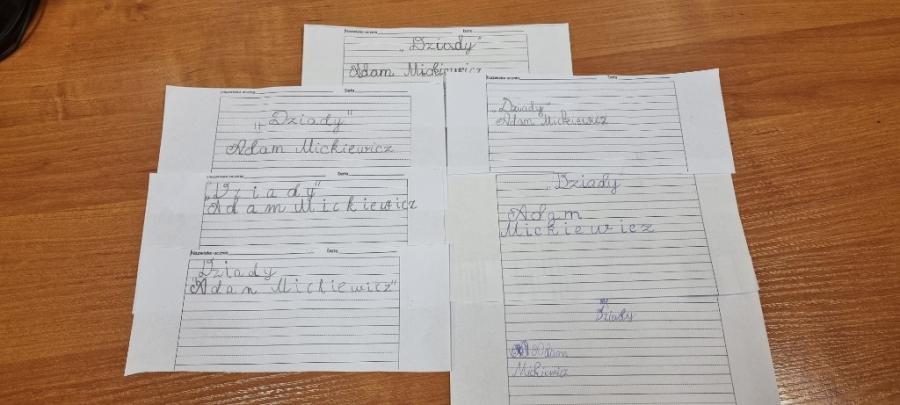 Nazwisko ucznia Data
„Dziady"
Adam Mickiewicz
Nazwisko ucznia Data
„Dziady"
Adam Mickiewicz
Nazwisko ucznia Data
„Dziady"
Adam Mickiewicz
Nazwisko ucznia Data
Dziady
"Adam Mickiewicz"
Nazwisko ucznia Data
„Dziady"
Adam Mickiewicz
„Dziady"
Adam
Mickiewicz
Dziady
Adam
Mickiewicz